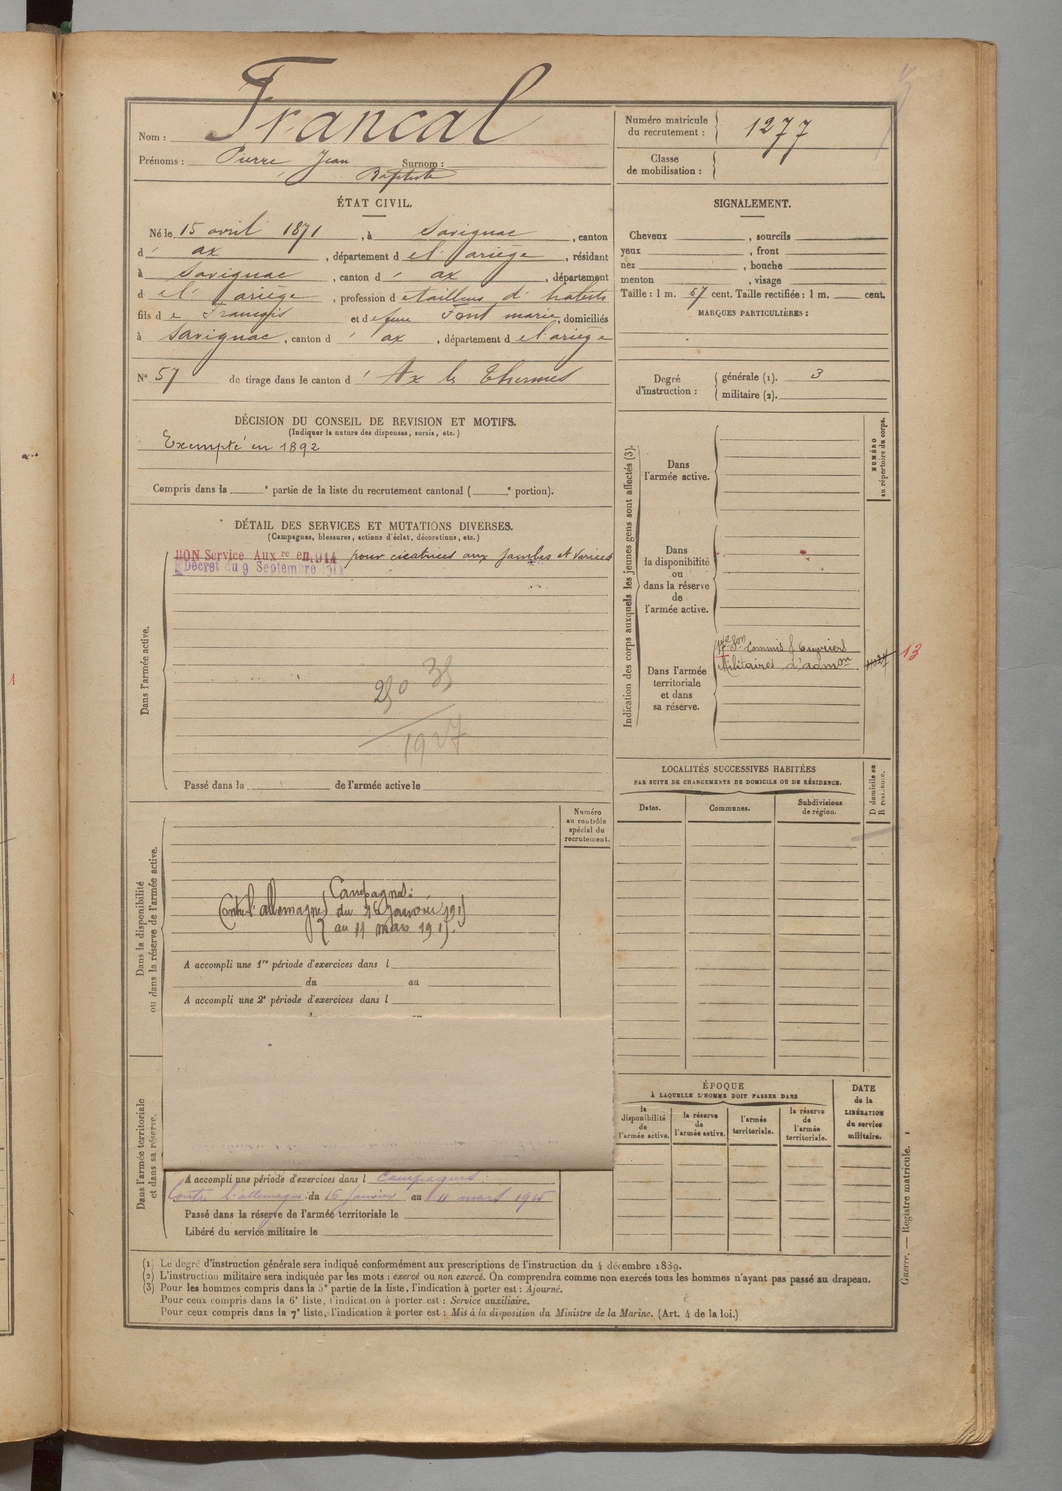 Nom : Francal
Prénoms : Pierre Jean Surnom :
Baptiste
ÉTAT CIVIL.
Né le 15 avril 1871, à Savignac, canton
d' ax, département d el' ariège, résidant
à Savignac, canton d' ax, département
d el' ariège, profession de tailleur d' habits
fils de François et de feue Font marie, domiciliés
à Savignac, canton d' ax, département de l'ariège
N° 57 de tirage dans le canton d' Ax les Thermes
DÉCISION DU CONSEIL DE REVISION ET MOTIFS.
(Indiquer la nature des dispenses, sursis, etc.)
Exempté en 1892
Compris dans la e partie de la liste du recrutement cantonal ( e portion).
DÉTAIL DES SERVICES ET MUTATIONS DIVERSES.
(Campagnes, blessures, actions d'éclat, décorations, etc.)
BON Service Aux re en 1914 pour cicatrices aux jambes et varices
Décret du 9 Septembre
Dans l'armée active.
Passé dans la de l'armée active le
Numéro
au contrôle
spécial du
recrutement.
Dans la disponibilité
ou dans la réserve de l'armée active.
Campagnes:
Contre l'allemagne du 16 Janvier 1915
au 11 mars 1915.
A accompli une 1re période d'exercices dans l
du au
A accompli une 2e période d'exercices dans l
Dans l'armée territoriale
et dans sa réserve.
A accompli une période d'exercices dans l Campagnes
Contre l'allemagne du 16 Janvier au 11 mars 1915
Passé dans la réserve de l'armée territoriale le
Libéré du service militaire le
Numéro matricule
du recrutement : 1277
Classe
de mobilisation :
SIGNALEMENT.
Cheveux , sourcils
yeux , front
nez , bouche
menton , visage
Taille : 1 m. 57 cent. Taille rectifiée : 1 m. cent.
MARQUES PARTICULIÈRES :
Degré
d'instruction :
générale (1). 3
militaire (2).
Indication des corps auxquels les jeunes gens sont affectés (3).
NUMÉRO
au répertoire du corps.
Dans
l'armée active.
Dans
la disponibilité
ou
dans la réserve
de
l'armée active.
Dans l'armée
territoriale
et dans
sa réserve.
17e Son Commis & Ouvriers
Militaires d'admon
13
LOCALITÉS SUCCESSIVES HABITÉES
PAR SUITE DE CHANGEMENTS DE DOMICILE OU DE RÉSIDENCE.
Dates.
Communes.
Subdivisions
de région.
D domicile ou
R résidence.
ÉPOQUE
À LAQUELLE L'HOMME DOIT PASSER DANS
la
disponibilité
de
l'armée active.
la réserve
de
l'armée active.
l'armée
territoriale.
la réserve
de
l'armée
territoriale.
DATE
de la
LIBÉRATION
du service
militaire.
Guerre. — Registre matricule. 1
(1) Le degré d'instruction générale sera indiqué conformément aux prescriptions de l'instruction du 4 décembre 1889.
(2) L'instruction militaire sera indiquée par les mots : exercé ou non exercé. On comprendra comme non exercés tous les hommes n'ayant pas passé au drapeau.
(3) Pour les hommes compris dans la 5e partie de la liste, l'indication à porter est : Ajourné.
Pour ceux compris dans la 6e liste, l'indication à porter est : Service auxiliaire.
Pour ceux compris dans la 7e liste, l'indication à porter est : Mis à la disposition du Ministre de la Marine. (Art. 4 de la loi.)